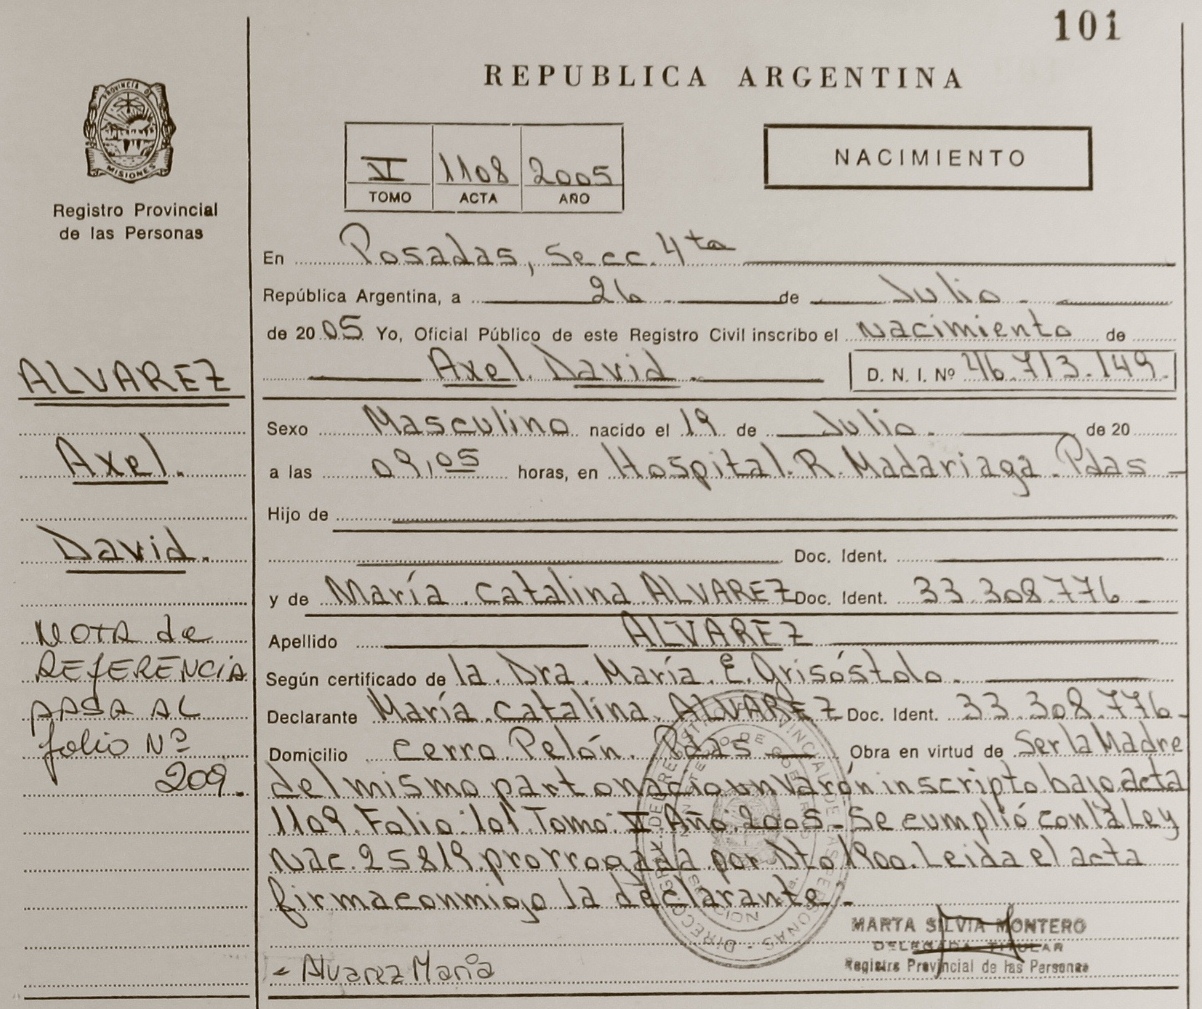 101
REPUBLICA ARGENTINA
PROVINCIA DE
MISIONES
Registro Provincial
de las Personas
VI 1108 2005
TOMO ACTA AÑO
NACIMIENTO
En Posadas, Secc. 4ta
República Argentina, a 26 de Julio
de 2005 Yo, Oficial Público de este Registro Civil inscribo el nacimiento de
Axel David D. N. I. Nº 46.713.149
Sexo Masculino nacido el 19 de Julio de 20
a las 09,05 horas, en Hospital R. Madariaga Pdas
Hijo de
Doc. Ident.
y de María Catalina ALVAREZ Doc. Ident. 33.308.776
Apellido ALVAREZ
Según certificado de la Dra. María E. Grisóstolo
Declarante María Catalina ALVAREZ Doc. Ident. 33.308.776
Domicilio Cerro Pelón Pdas Obra en virtud de Ser la Madre
del mismo parto nacio un varón inscripto bajo acta
1109 Folio 101 Tomo VI Año 2005 - Se cumplió con la Ley
Nac. 25819 prorrogada por Dto 1800. Leida el acta
firma conmigo la declarante
Alvarez María
MARTA SILVIA MONTERO
DELEGADA TITULAR
Registro Provincial de las Personas
ALVAREZ
Axel.
David.
NOTA de
REFERENCIA
PASA AL
folio Nº
209.